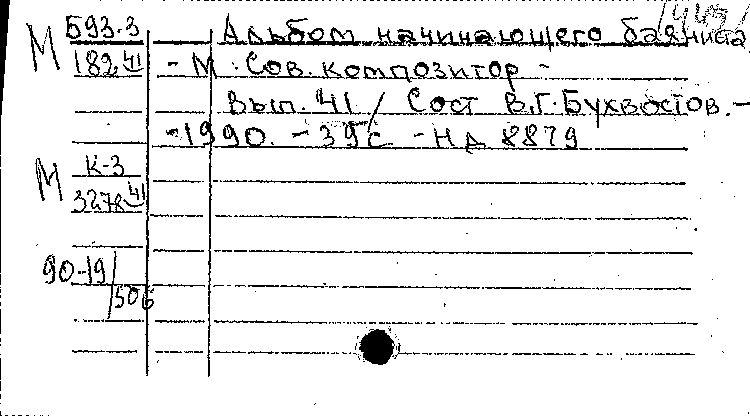 М 593.3 Альбом начинающего баяниста
182 41 - М. Сов. композитор -
Вып. 41 / Сост В.Г. Бухвостов. -
-1990. - 39 с - НД 8879
М К-3
41
90-19/506